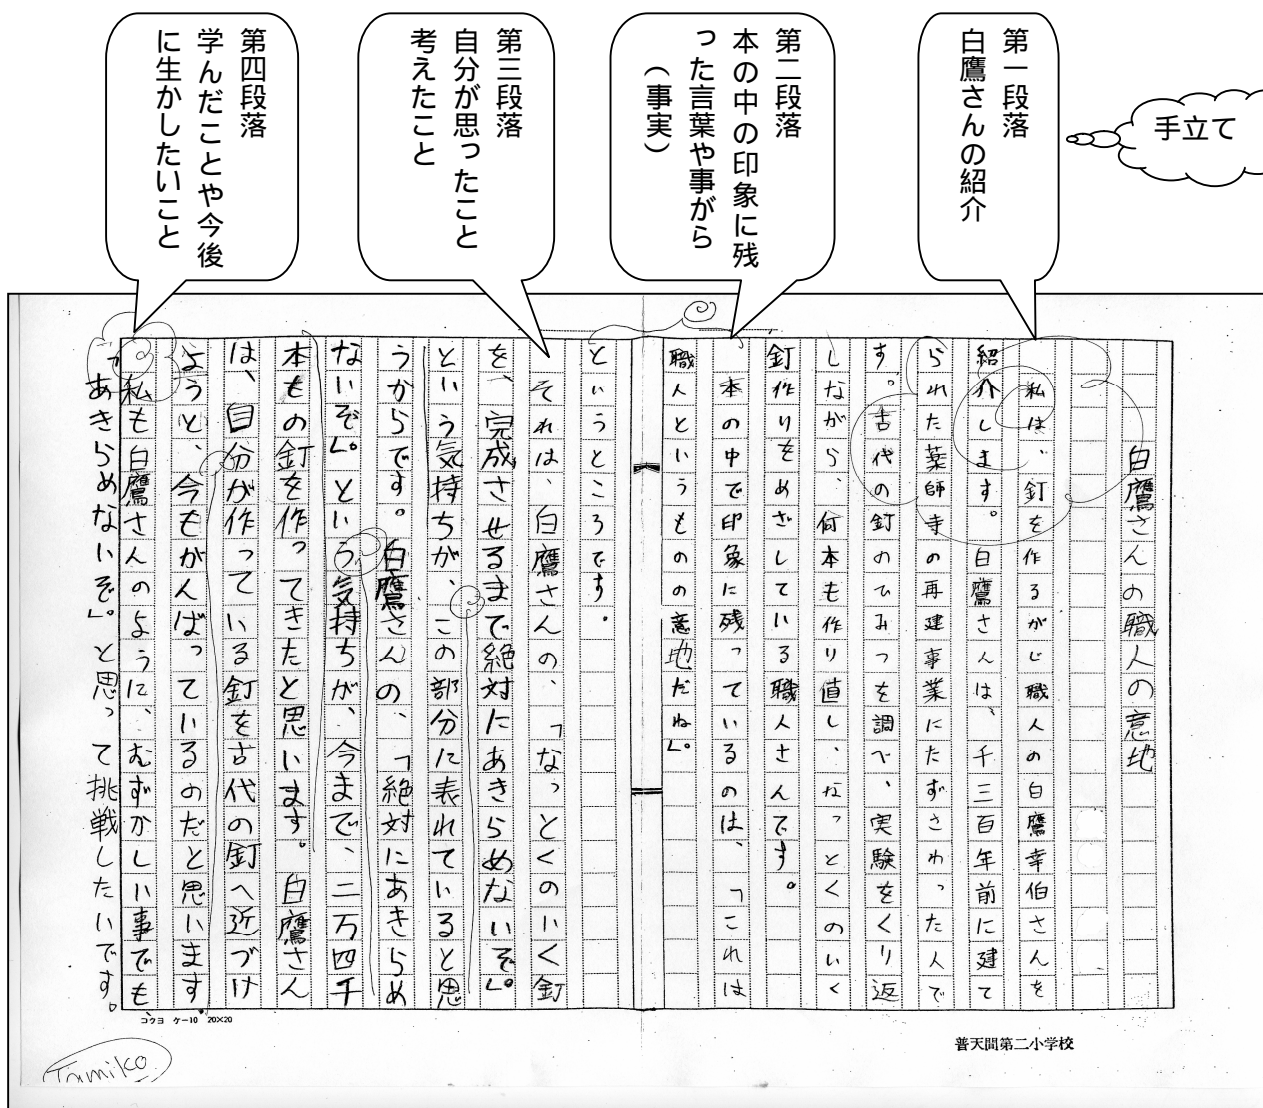 手立て
第一段落
白鷹さんの紹介
第二段落
本の中の印象に残
った言葉や事がら
(事実)
第三段落
自分が思ったこと
考えたこと
第四段落
学んだことや今後
に生かしたいこと
白鷹さんの職人の意地
私は、釘を作るがじ職人の白鷹幸伯さんを
紹介します。白鷹さんは、千三百年前に建て
られた薬師寺の再建事業にたずさわった人で
す。古代の釘のひみつを調べ、実験をくり返
しながら、何本も作り直し、なっとくのいく
釘作りをめざしている職人さんです。
本の中で印象に残っているのは、「これは
職人というものの意地だね」。
というところです。
それは、白鷹さんの、「なっとくのいく釘
を、完成させるまで絶対にあきらめないぞ」。
という気持ちが、この部分に表れていると思
うからです。白鷹さんの、「絶対にあきらめ
ないぞ」。という気持ちが、今まで、二万四千
本もの釘を作ってきたと思います。白鷹さん
は、自分が作っている釘を古代の釘へ近づけ
ようと、今もがんばっているのだと思います
私も白鷹さんのように、むずかしい事でも
「あきらめないぞ」。と思って挑戦したいです。
コクヨ ケー10 20×20
普天間第二小学校
Tamiko